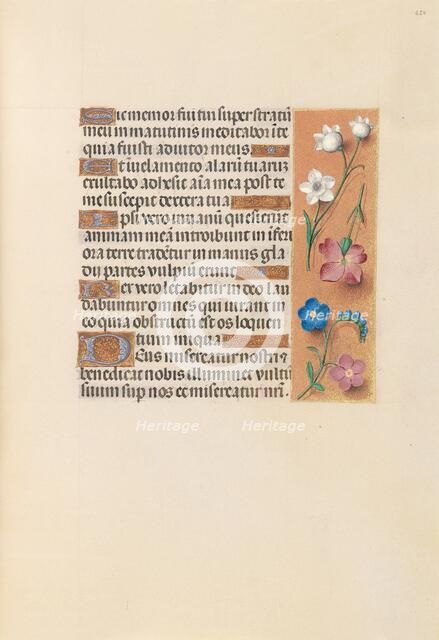 Sic memor fui tui super stratū
meū in matutinis meditabor ī te
quia fuisti adiutor meus
Et ī uelamento alarū tuarū
exultabo adhesit aīa mea post te
me suscepit dextera tua
Ipsi vero in uanū quesierūt
animam meā introibunt in īferi
ora terre tradētur in manus gla
dij partes vulpiū erunt
Rex vero letabitur in deo lau
dabuntur omnes qui iurant in
eo quia obstructū est os loquen
tium iniqua
Deus misereatur nostri et
benedicat nobis illuminet vultū
suum sup nos et misereatur nrī.
Heritage
Heritage
Heritage
Heritage
Heritage